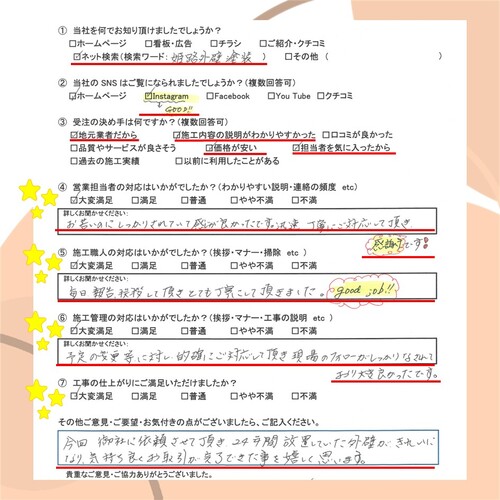 ① 当社を何でお知り頂けましたでしょうか？
□ホームページ □看板・広告 □チラシ □ご紹介・クチコミ
☑ネット検索（検索ワード：姫路外壁塗装） □その他（ ）
② 当社のSNSはご覧になられましたでしょうか？（複数回答可）
☑ホームページ ☑Instagram □Facebook □You Tube □クチコミ
GOOD!!
③ 受注の決め手は何ですか？（複数回答可）
☑地元業者だから ☑施工内容の説明がわかりやすかった □口コミが良かった
□品質やサービスが良さそう ☑価格が安い ☑担当者を気に入ったから
□過去の施工実績 □以前に利用したことがある
④ 営業担当者の対応はいかがでしたか？（わかりやすい説明・連絡の頻度 etc）
☑大変満足 □満足 □普通 □やや不満 □不満
詳しくお聞かせください：
お若いのにしっかりされていて感じが良かったです。迅速、丁寧にご対応して頂き
感謝です!
⑤ 施工職人の対応はいかがでしたか？（挨拶・マナー・掃除 etc ）
☑大変満足 □満足 □普通 □やや不満 □不満
詳しくお聞かせください：
毎日報告、挨拶して頂きとても丁寧にして頂きました。 good job!!
⑥ 施工管理の対応はいかがでしたか？（挨拶・マナー・工事の説明 etc）
☑大変満足 □満足 □普通 □やや不満 □不満
詳しくお聞かせください：
予定の変更等に対し的確にご対応して頂き現場のフォローがしっかりなされて
おり大変良かったです。
⑦ 工事の仕上がりにご満足いただけましたか？
☑大変満足 □満足 □普通 □やや不満 □不満
その他ご意見・ご要望・お気付きの点がございましたら、ご記入ください。
今回 御社に依頼させて頂き24年間放置していた外壁がきれいに
なり、気持ち良くお取引が完了できた事を嬉しく思います。
貴重なご意見・ご協力ありがとうございました。